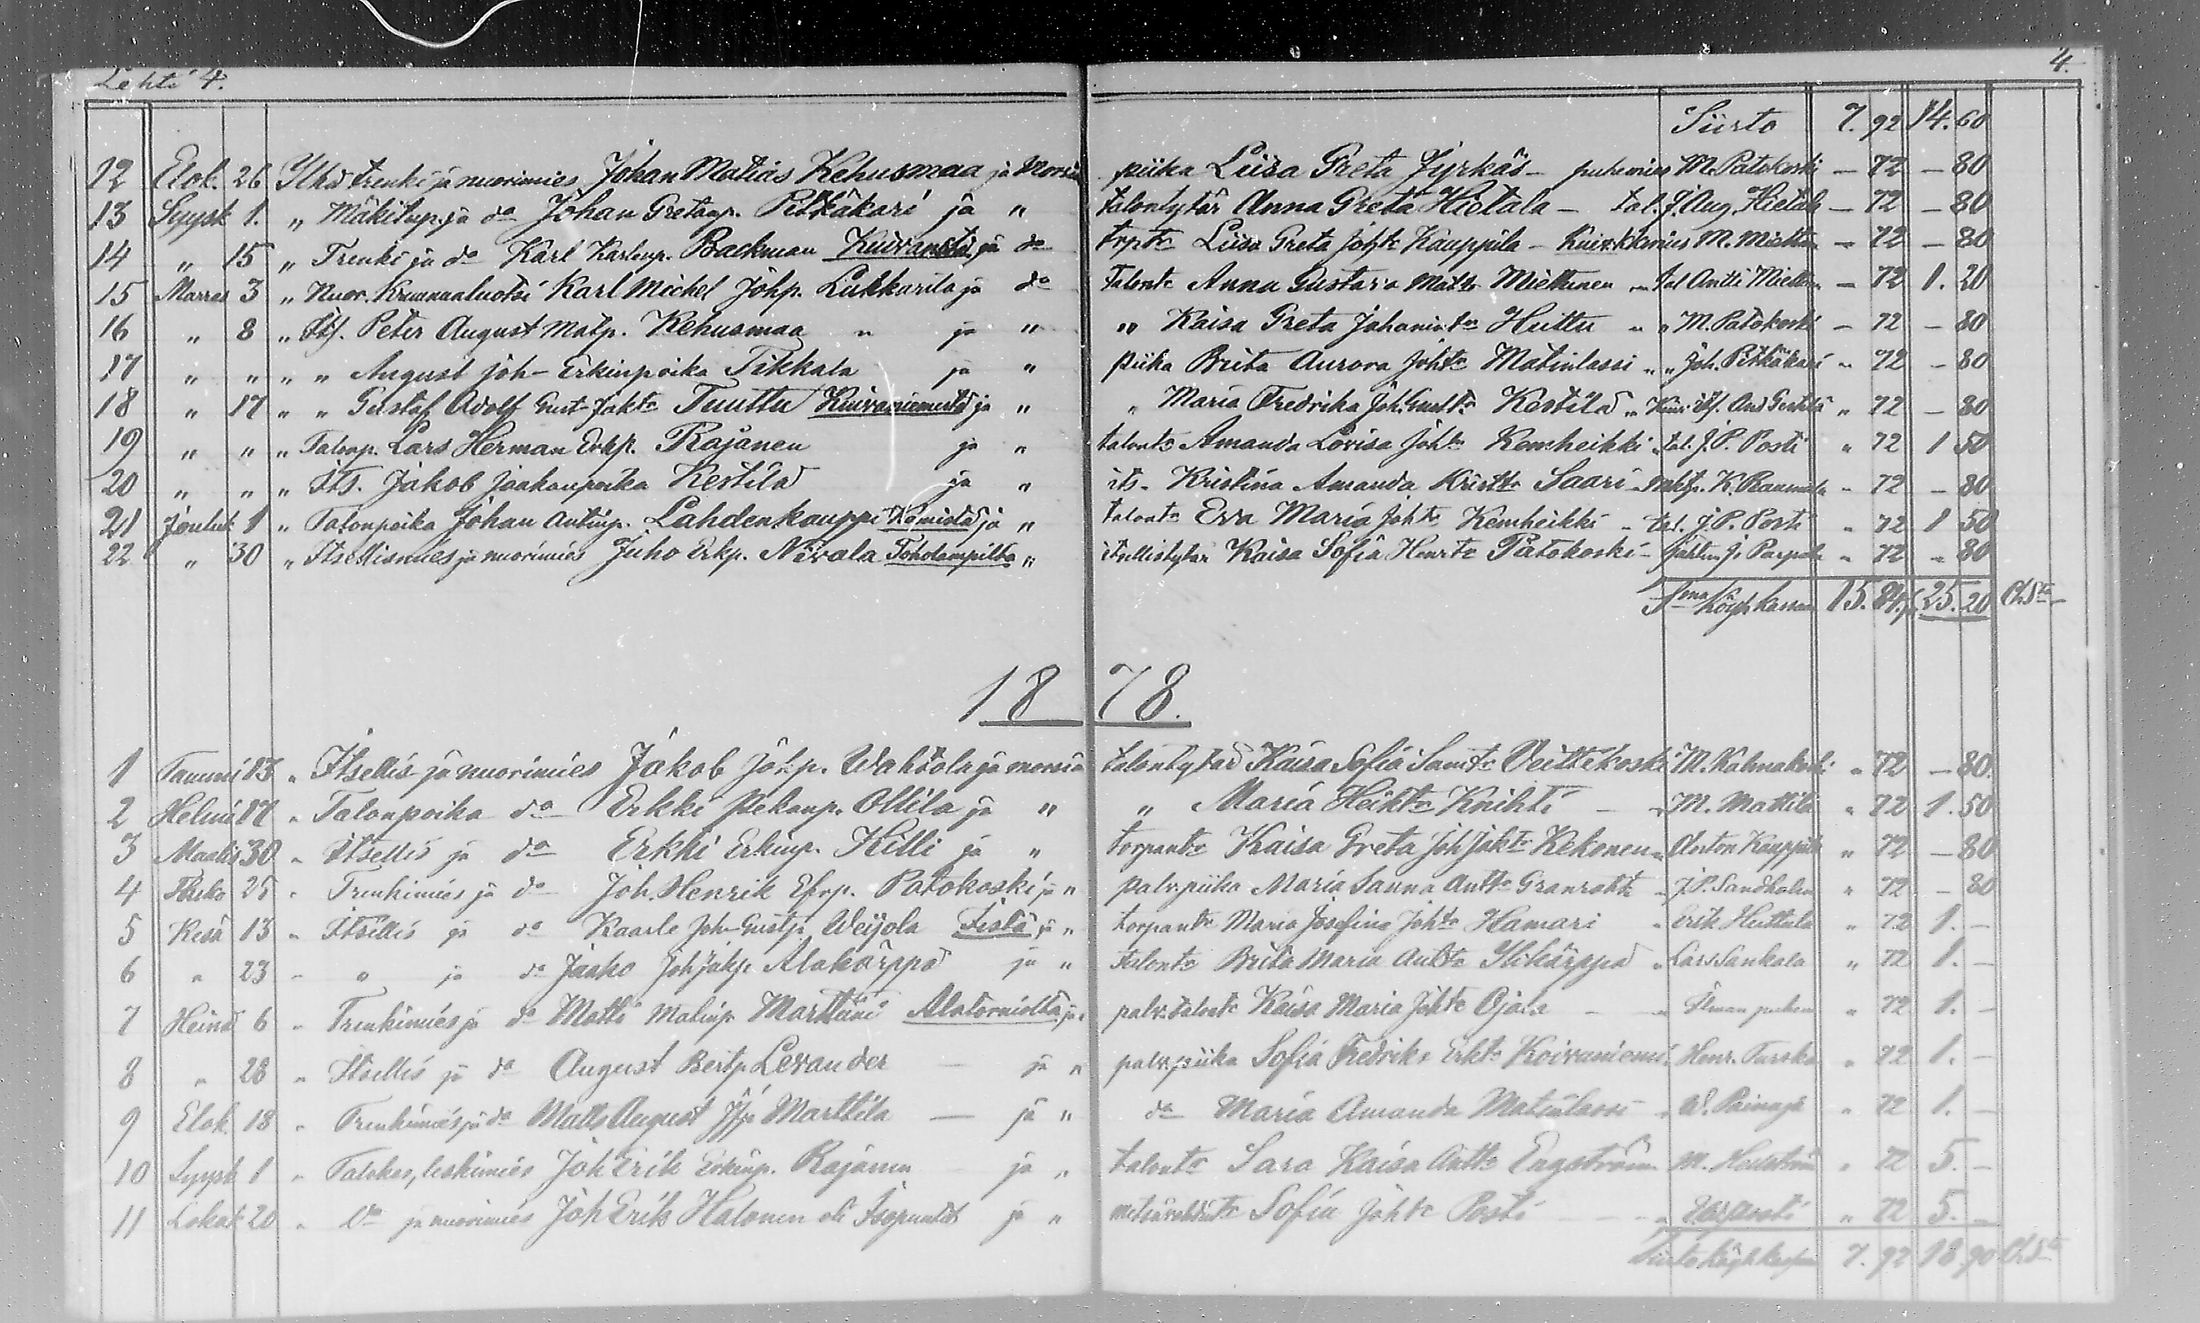 Lehti 4. 4.
Siirto 7. 92 14. 60
12 Elok. 26 Ylhd trenki ja nuorimies Johan Matias Kehusmaa ja Morsia piika Liisa Greta Jyrkäs – puhemies M. Patokoski – 72 – 80
13 Syysk 1. „ Mäkitup. ja do Johan Gretanp. Pitkäkari ja „ talontytär Anna Greta Hietala – tal. J. Aug. Hietala – 72 – 80
14 „ 15 „ Trenki ja do Karl Karlinp. Backman Kuivaniem ja do trptr Liisa Greta Johtr Kauppila – M. – 72 – 80
15 Marras 3 „ Nuor. Kruununluotsi Karl Michel Johp. Lukkarila ja do talontr Anna Gustava Mattr Miettinen – tal Antti Miettinen – 72 1. 20
16 „ 8 „ Its. Peter August Matp. Kehusmaa „ ja „ „ Kaisa Greta Johanintr Huttu „ „ M. Patokoski – 72 – 80
17 „ „ „ „ August Joh– Erkinpoika Tikkala ja „ piika Briita Aurora Johtr Matinlassi „ „ Joh. Pitkäkari „ 72 – 80
18 „ 17 „ „ Gustaf Adolf Gust Jaktr Tuuttu Kuivaniemeltä ja „ „ Maria Fredrika Joh. Gusttr Kestilä „ And Kestilä „ 72 – 80
19 „ „ „ Talonp. Lars Herman Erkp. Rajanen ja „ talontr Amanda Lovisa Johtr Kemheikki „ tal. J. P. Posti „ 72 1 50
20 „ „ „ Its. Jakob Jaakonpoika Kestilä ja „ its. Kristina Amanda Kristtr Saari – K. Raumala – 72 – 80
21 Jouluk 1 „ Talonpoika Johan Antinp. Lahdenkauppi Kemistä ja „ talontr Eva Maria Johtr Kemheikki – tal. J. P. Posti „ 72 1 50
22 „ 30 „ Itsellismies ja nuorimies Juho Erkp. Nivala Toholammilta „ itsellistytär Kaisa Sofia Henrtr Patokoski – J. „ 72 „ 80
Sma Köyh kassan 15. 84 25. 20
1878.
1 Tammi 13 „ Itsellis ja nuorimies Jakob Johp. Wahtola ja morsia talontytär Kaisa Sofia Samtr Veittikoski M. „ 72 – 80.
2 Helmi 17 „ Talonpoika do Erkki Ollila ja „ „ Maria Heiktr Knihti – „ M. Mattila „ 72 1. 50
3 Maalis 30 „ Itsellis ja do Erkki Erkinp. Killi ja „ torpantr Kaisa Greta Joh Jaktr Kekonen „ Kauppila „ 72 – 80
4 25 „ Trenkimies ja do Joh. Henrik Patokoski ja „ palv. piika Maria Sanna Anttr Granroth – J. P. Sandholm „ 72 – 80
5 Kesä 13 „ Itsellis ja do Kaarle Joh Gustp Weijola Iistä ja „ torpantr Maria Josefina Johtr Hamari „ Erik Huttula „ 72 1. –
6 „ 23 – „ ja do Jaako Joh Jakp. Alakärppä ja „ talontr Briita Maria Anttr Ylikärppä „ Lars Sankala „ 72 1. –
7 Heinä 6 „ Trenkimies ja do Matti Matinp. Marttini Alatorniolta ja „ palv. talontr Kaisa Maria Johtr Ojala – „ Ilman puhem „ 72 1. –
8 „ 28 „ Itsellis ja do August Levander – ja „ palv. piika Sofia Fredrika Erktr Koivaniemi Henr. Turska „ 72 1. –
9 Elok. 18 „ Trenkimies ja do Matts August Marttila – ja „ do Maria Amanda Matinlassi „ 72 1. –
10 Syysk 1 „ leskimies Joh Erik Erkinp. Rajanen ja „ talontr Sara Kaisa Anttr Engström M. „ 72 5. –
11 Lokak 20 „ do ja nuorimies Joh Erik Halonen ja „ Sofia Johtr Posti – „ „ 72 5. –
7. 92 18 90